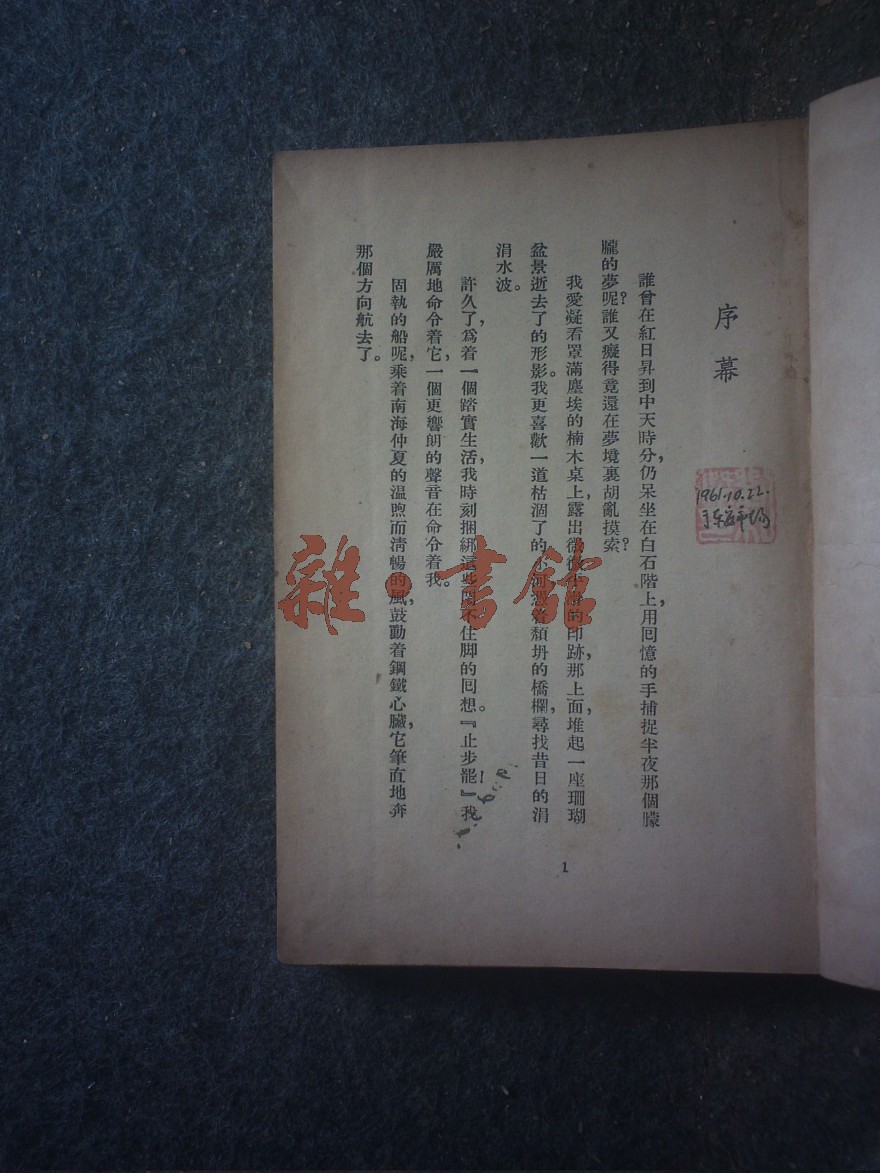 序幕
誰曾在紅日昇到中天時分，仍呆坐在白石階上，用回憶的手捕捉半夜那個朦
朧的夢呢？誰又癡得竟還在夢境裏胡亂摸索？
我愛凝看罩滿塵埃的楠木桌上，露出微微的印跡，那上面，堆起一座珊瑚
盆景逝去了的形影。我更喜歡一道枯涸了的小河，憑着頹坍的橋欄，尋找昔日的涓
涓水波。
許久了，爲着一個踏實生活，我時刻捆綁這些不住脚的回想。『止步罷！』我
嚴厲地命令着它，一個更響朗的聲音在命令着我。
固執的船呢，乘着南海仲夏的温煦而清暢的風，鼓動着鋼鐵心臟，它筆直地奔
那個方向航去了。
1
1961.10.22.
雜·書館